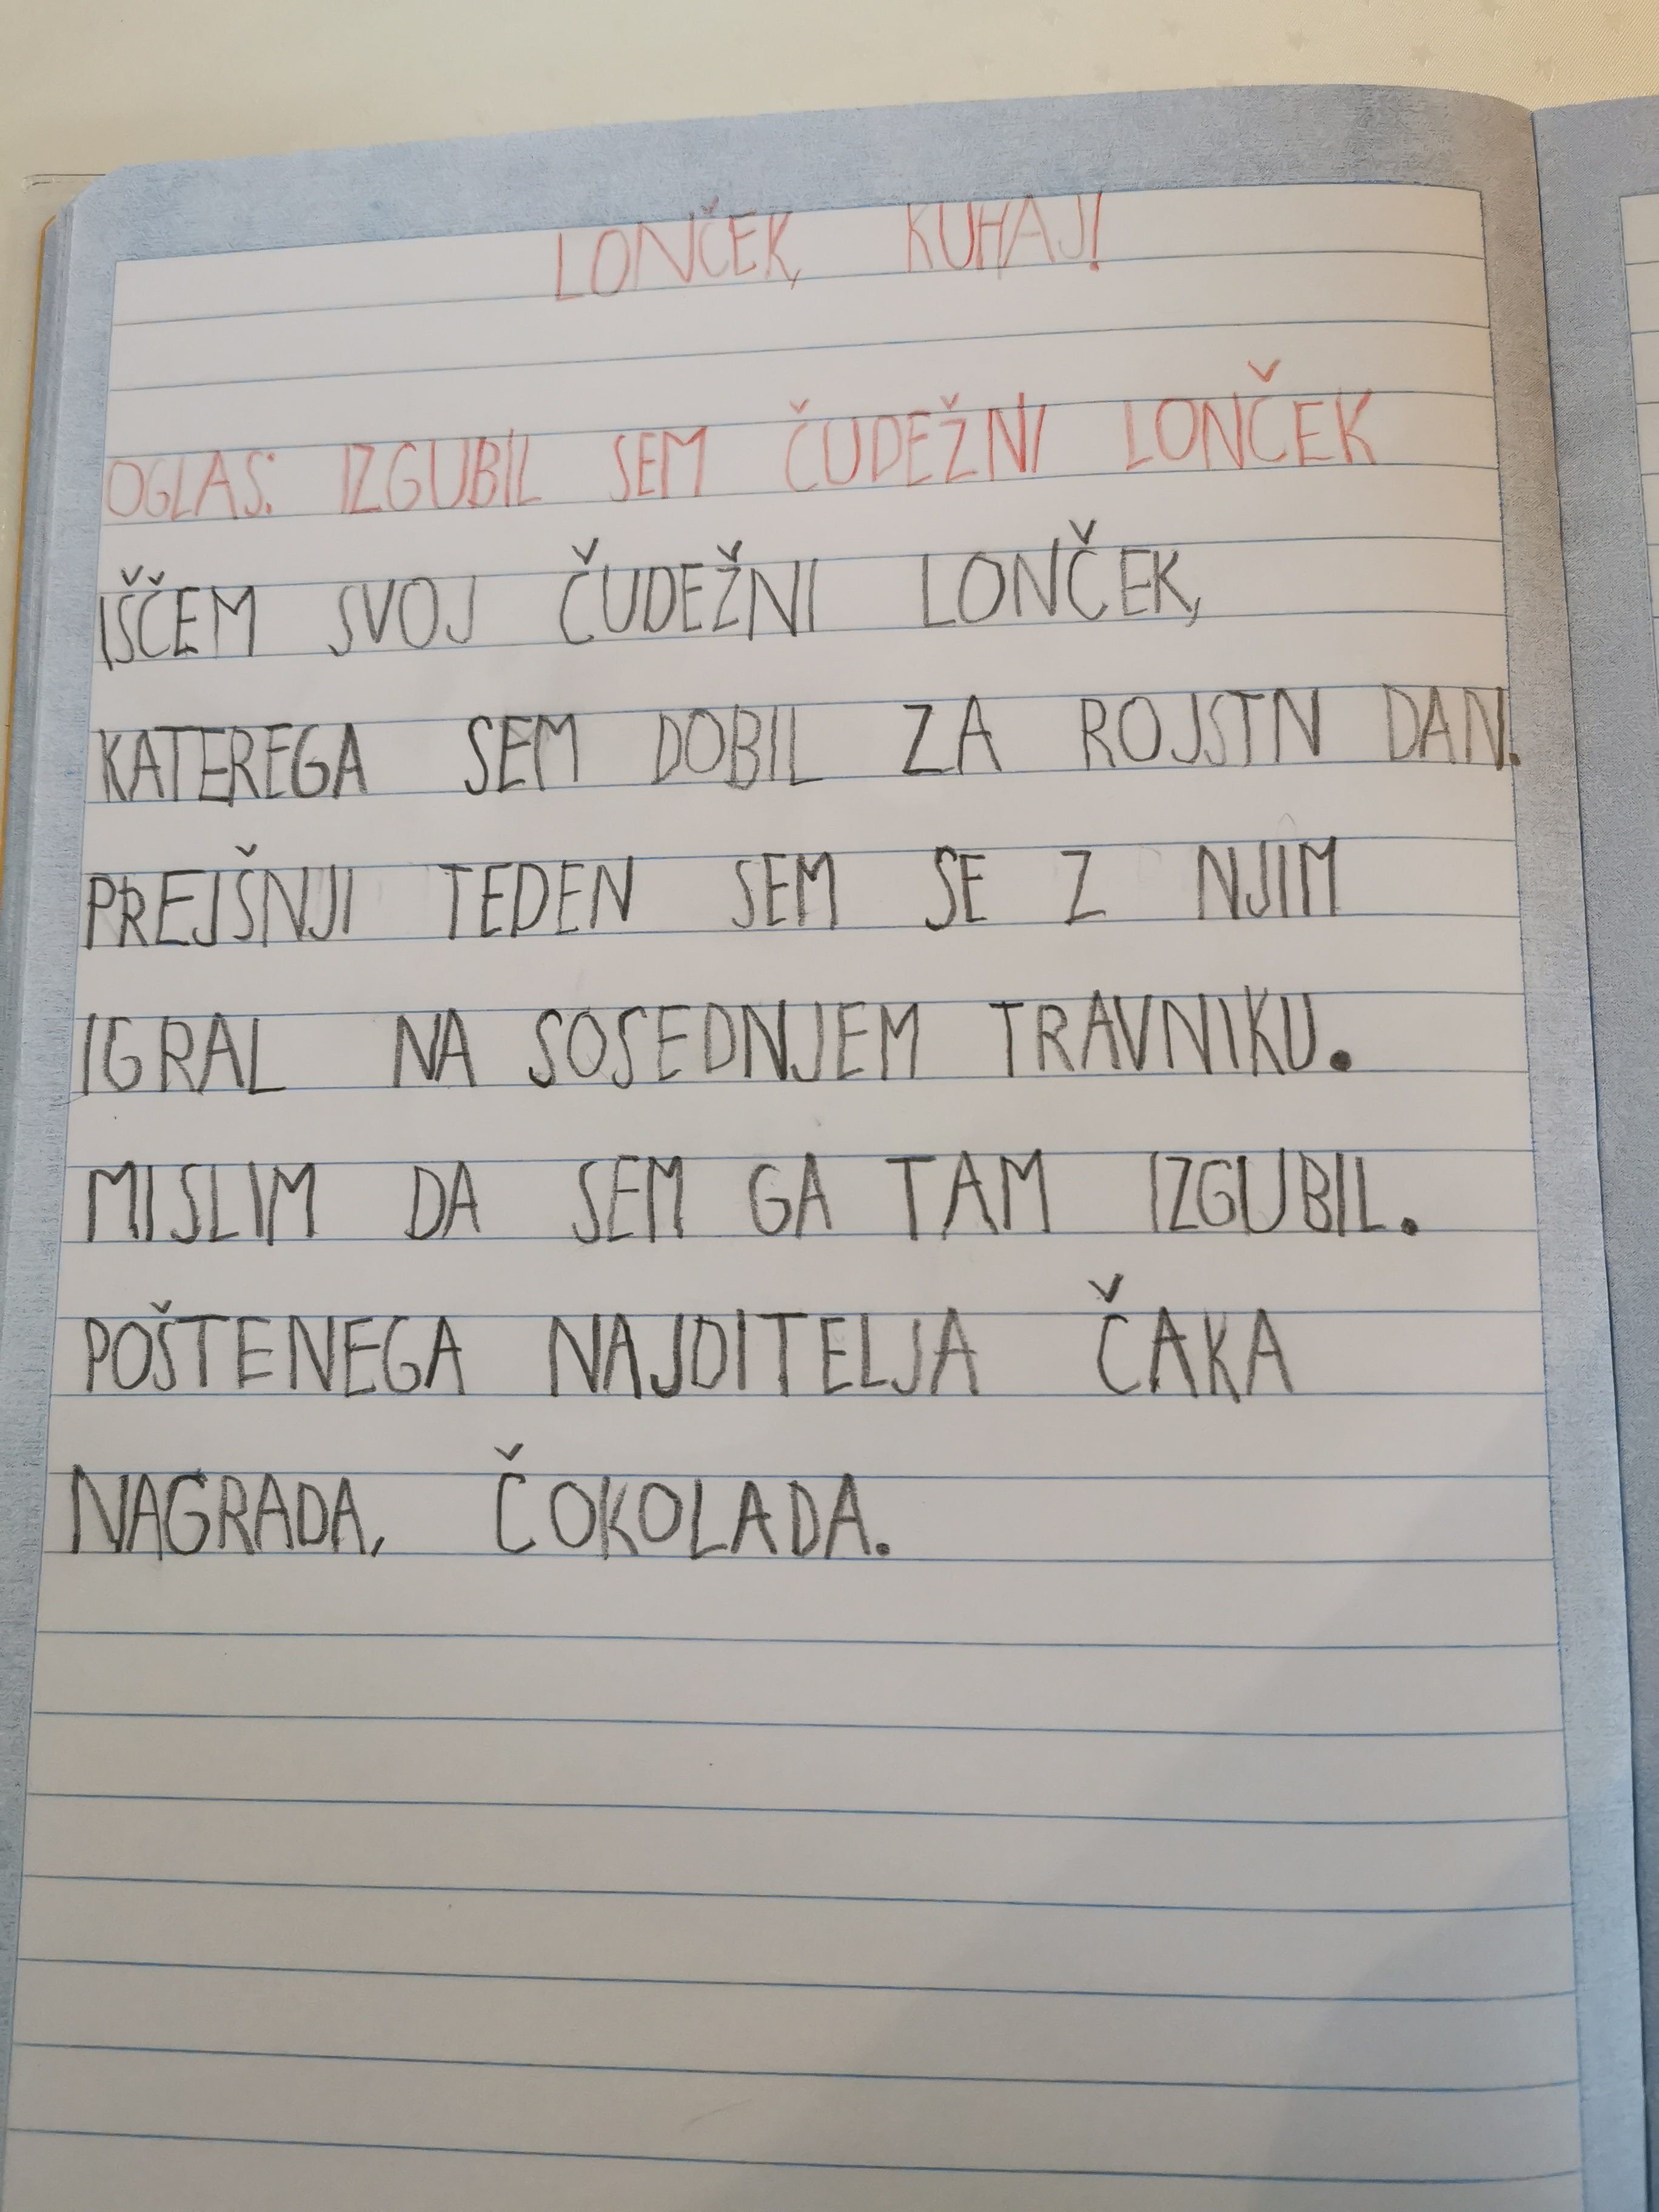 LONČEK, KUHAJ!
OGLAS: IZGUBIL SEM ČUDEŽNI LONČEK
IŠČEM SVOJ ČUDEŽNI LONČEK,
KATEREGA SEM DOBIL ZA ROJSTN DAN.
PREJŠNJI TEDEN SEM SE Z NJIM
IGRAL NA SOSEDNJEM TRAVNIKU.
MISLIM DA SEM GA TAM IZGUBIL.
POŠTENEGA NAJDITELJA ČAKA
NAGRADA, ČOKOLADA.